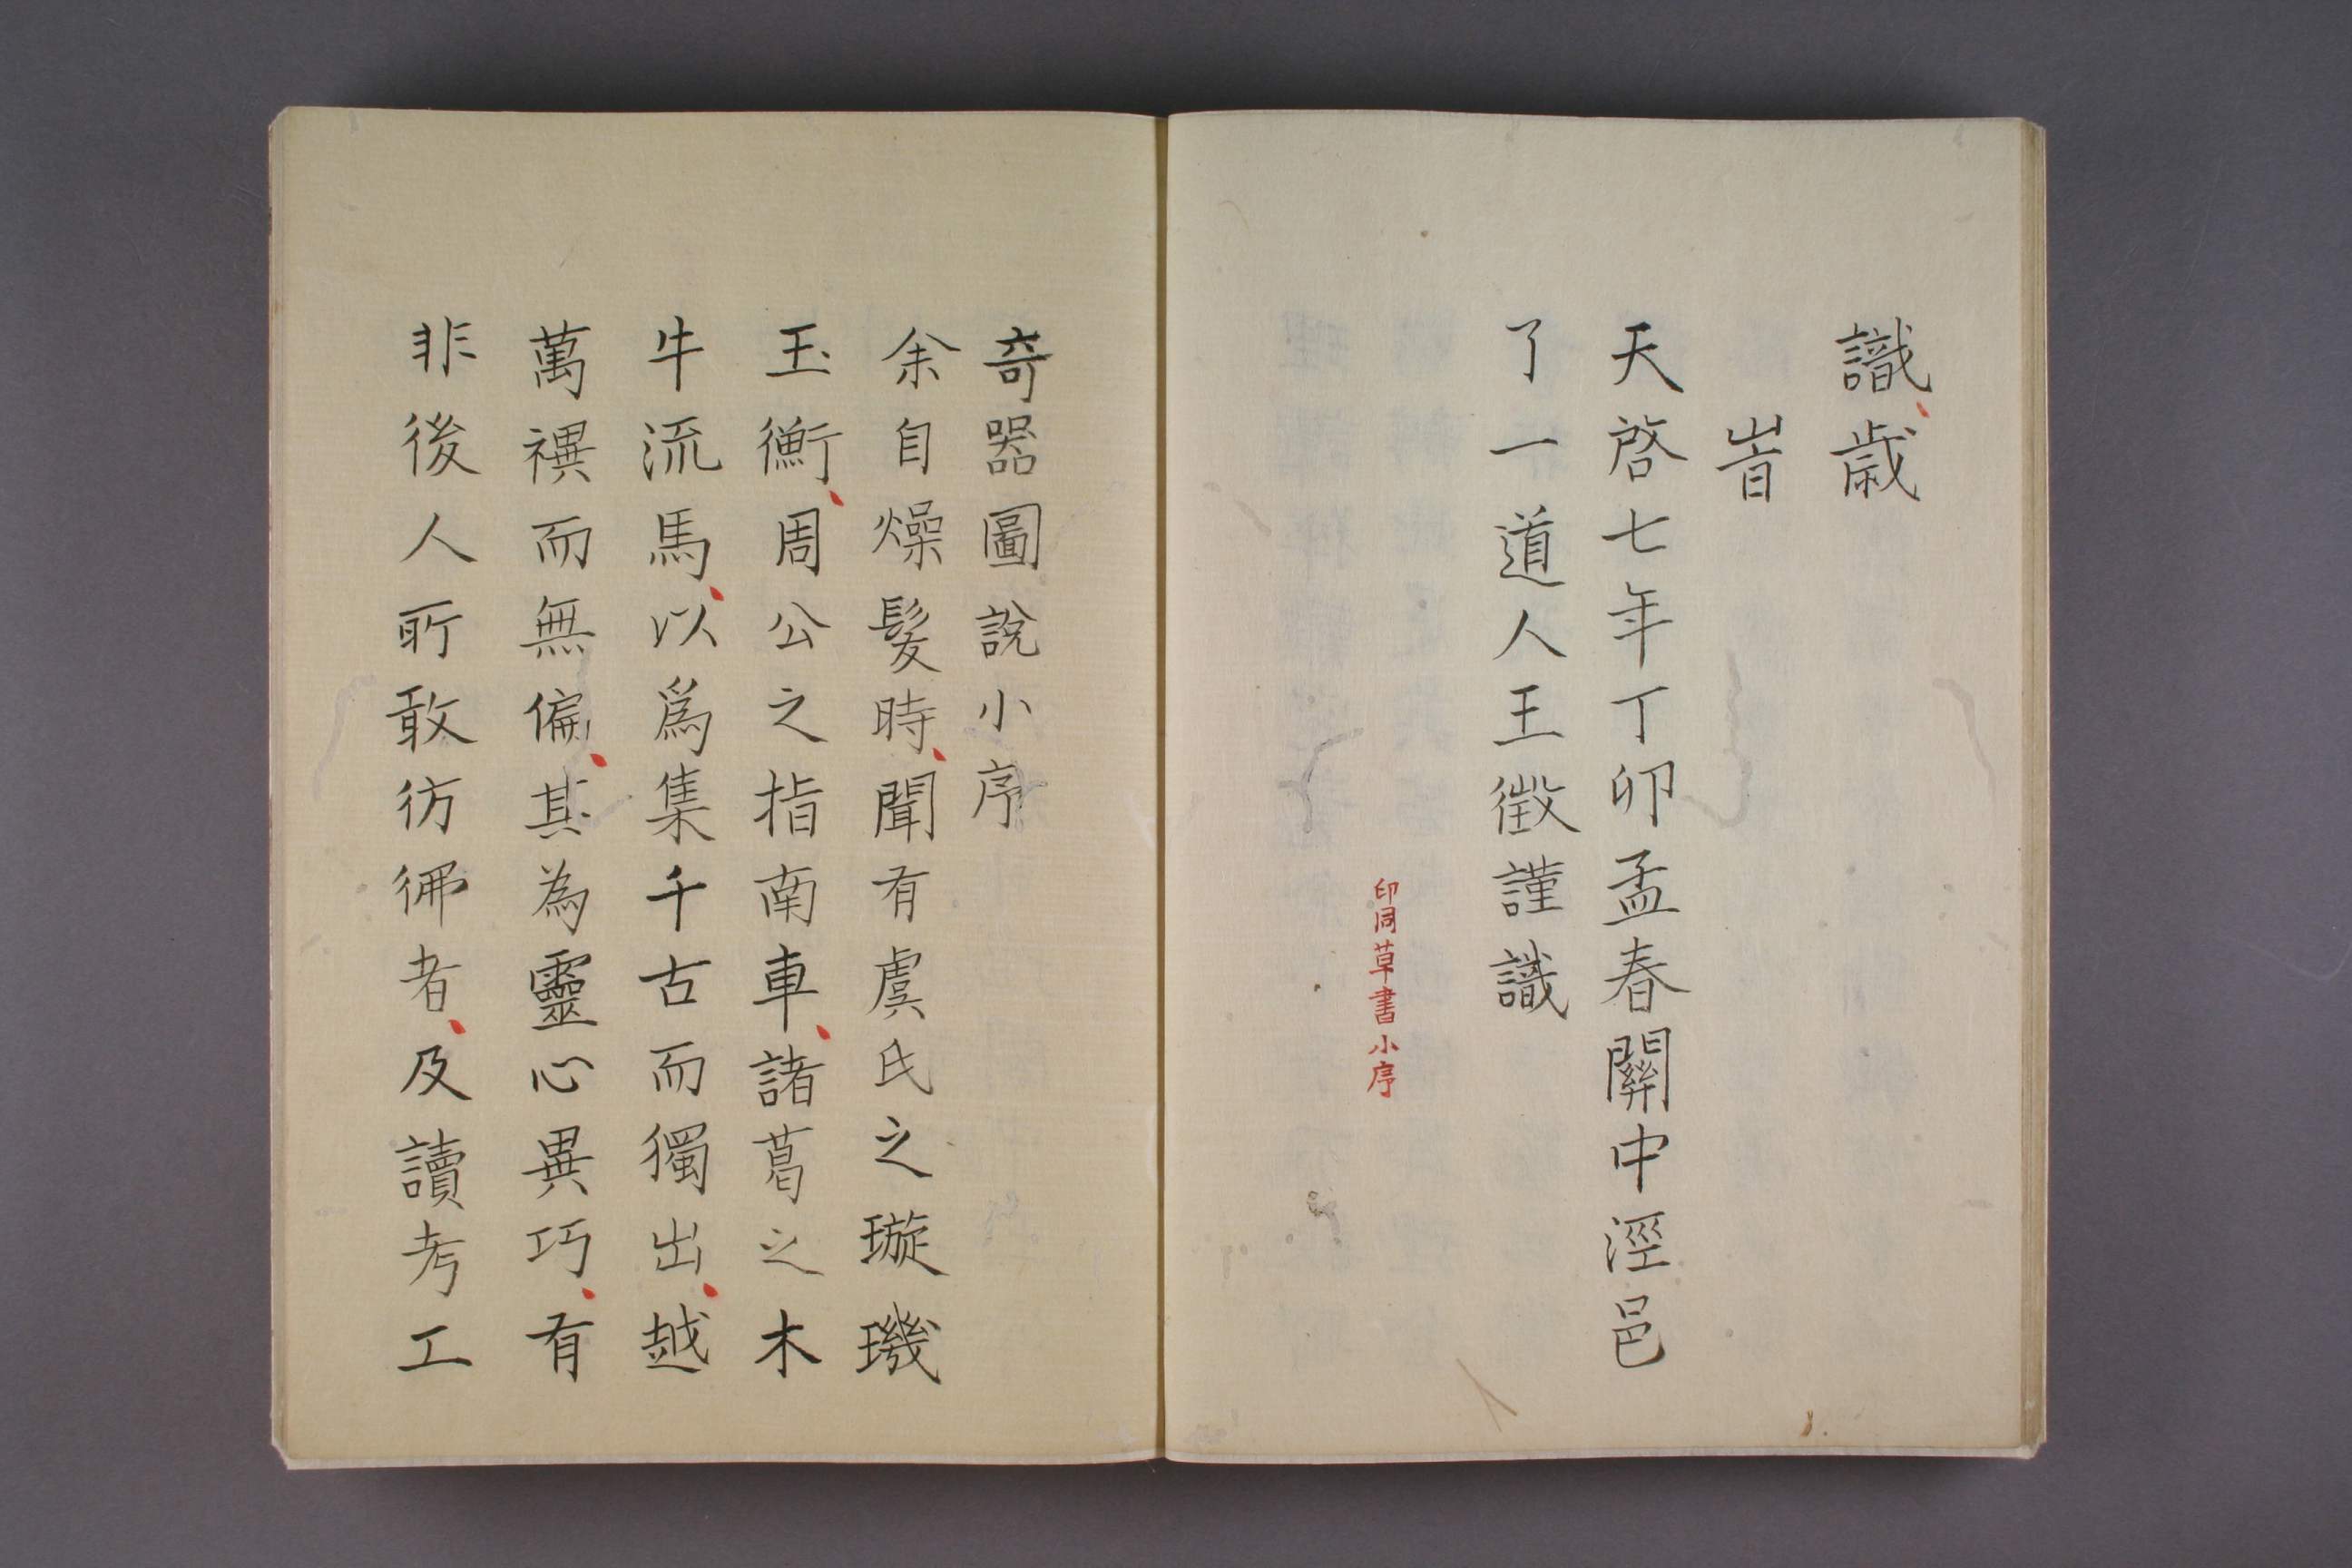 識、歲
旹
天啓七年丁卯孟春關中涇邑
了一道人王徵謹識
印同草書小序
奇器圖說小序
余自燥髮時、聞有虞氏之璇璣
玉衡、周公之指南車、諸葛之木
牛流馬、以爲集千古而獨出、越
萬禩而無偏、其為靈心異巧、有
非後人所敢彷彿者、及讀考工